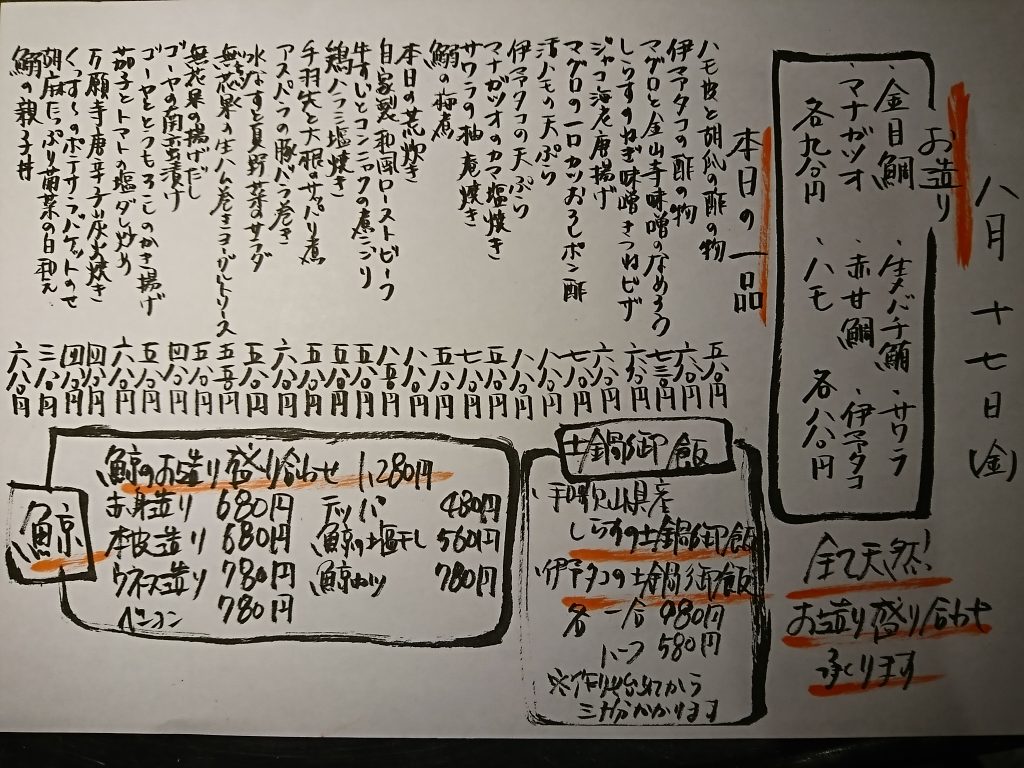 八月十七日(金)
お造り
・金目鯛 ・生バチ鮪 ・サワラ
・マナガツオ ・赤甘鯛 ・伊予タコ
各九八〇円 ・ハモ 各八八〇円
全て天然!
お造り盛り合わせ
承ります
本日の一品
ハモ皮と胡瓜の酢の物 五八〇円
伊予タコの酢の物 六八〇円
マグロと金山寺味噌のなめろう 七三〇円
しらすのねぎ味噌きつねピザ 六八〇円
ジャコ海老唐揚げ 六八〇円
マグロの一口カツおろしポン酢 七八〇円
活ハモの天ぷら 八八〇円
伊予タコの天ぷら 八八〇円
マナガツオのカマ塩焼き 五八〇円
サワラの柚庵焼き 七八〇円
鰯の梅煮 五八〇円
本日の荒炊き 八八〇円
自家製和風ローストビーフ 八五〇円
牛すじとコンニャクの煮こごり 五八〇円
鶏ハラミ塩焼き 五八〇円
手羽先と大根のサッパリ煮 五八〇円
アスパラの豚バラ巻き 六八〇円
水なすと夏野菜のサラダ 五八〇円
無花果の生ハム巻きヨーグルトソース 五五〇円
無花果の揚げだし 五八〇円
ゴーヤの南蛮漬け 四八〇円
ゴーヤととうもろこしのかき揚げ 五八〇円
茄子とトマトの塩ダレ炒め 六八〇円
万願寺唐辛子炭火焼き 四八〇円
くんずーのポテサラバケットのせ 四八〇円
胡麻たっぷり菊菜の白和え 三八〇円
鰯の親子丼 六八〇円
土鍋御飯
和歌山県産
しらすの土鍋御飯
伊予タコの土鍋御飯
各 一合 980円
ハーフ 580円
※作り始めてから
三十分かかります
鯨
鯨のお造り盛り合わせ 1,280円
赤身造り 680円 テッパ 480円
本皮造り 680円 鯨の塩干し 560円
ウネス造り 780円 鯨カツ 780円
ベーコン 780円